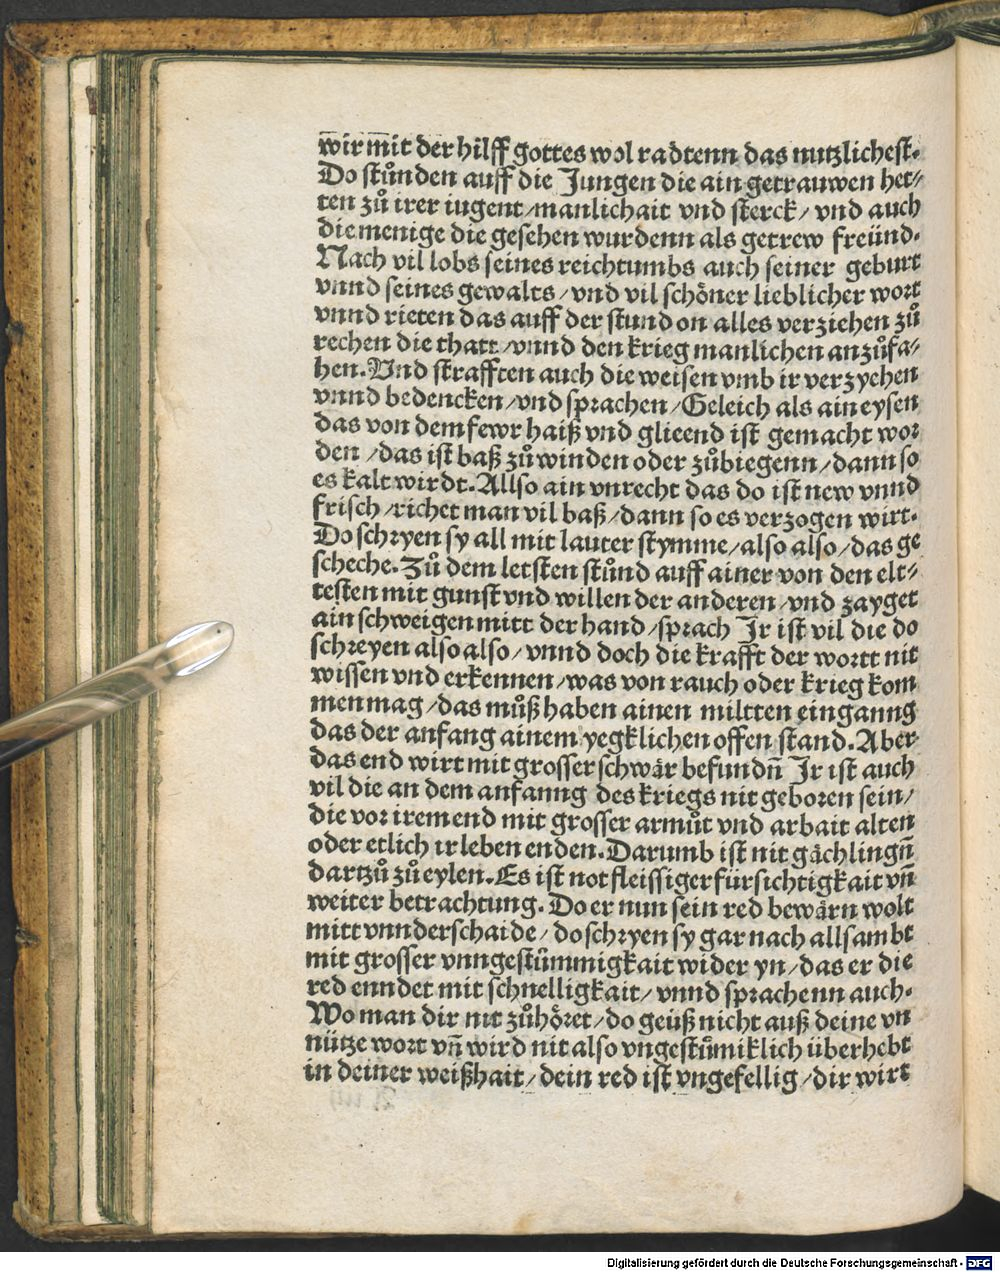 wir mit der hilff gottes wol radtenn das nutzlichest.
Do stůnden auff die Jungen die ain getrauwen het⸗
ten zů irer iugent/manlichait vnd sterck/ vnd auch
die menige die gesehen wurdenn als getrew freünd.
Nach vil lobs seines reichtumbs auch seiner geburt
vnnd seines gewalts/vnd vil schöner lieblicher wort
vnnd rieten das auff der stund on alles verziehen zů
rechen die thatt/vnnd den krieg manlichen anzůfa⸗
hen. Vnd strafften auch die weisen vmb ir verzychen
vnnd bedencken/vnd sprachen/Geleich als ain eysen
das von dem fewr haiß vnd glieend ist gemacht wor
den/das ist baß zů winden oder zůbiegenn/dann so
es kalt wirdt. Allso ain vnrecht das do ist new vnnd
frisch/richet man vil baß/dann so es verzogen wirt.
Do schryen sy all mit lauter stymme/also also/das ge
scheche. Zů dem letsten stůnd auff ainer von den elt⸗
testen mit gunst vnd willen der anderen/vnd zayget
ain schweigen mitt der hand/sprach Jr ist vil die do
schreyen also also/vnnd doch die krafft der wortt nit
wissen vnd erkennen/was von rauch oder krieg kom
men mag/das můß haben ainen miltten einganng
das der anfang ainem yegklichen offen stand. Aber
das end wirt mit grosser schwär befundn̄ Jr ist auch
vil die an dem anfanng des kriegs nit geboren sein/
die vor irem end mit grosser armůt vnd arbait alten
oder etlich ir leben enden. Darumb ist nit gächlingn̄
dartzů zů eylen. Es ist not fleissiger fürsichtigkait vn̄
weiter betrachtung. Do er nun sein red bewärn wolt
mitt vnnderschaide/do schryen sy gar nach allsambt
mit grosser vnngestümmigkait wider yn/das er die
red enndet mit schnelligkait/vnnd sprachenn auch.
Wo man dir nit zůhöret/do geüß nicht auß deine vn
nütze wort vn̄ wird nit also vngestümiklich überhebt
in deiner weißhait/dein red ist vngefellig/dir wirt
Digitalisierung gefördert durch die Deutsche Forschungsgemeinschaft - DFG